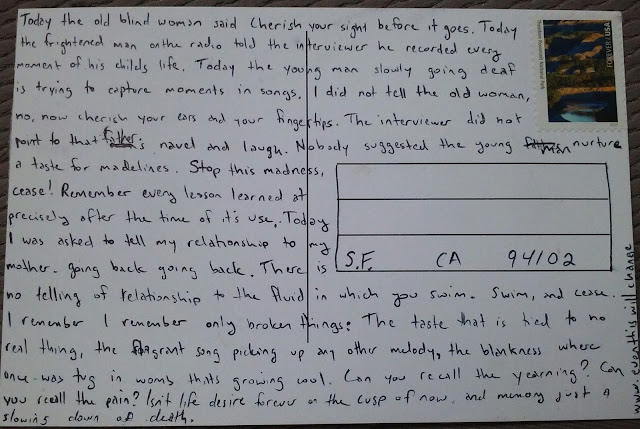 Today the old blind woman said Cherish your sight before it goes. Today
the frightened man on the radio told the interviewer he recorded every
moment of his childs life. Today the young man slowly going deaf
is trying to capture moments in songs. I did not tell the old woman,
no, now cherish your ears and your fingertips. The interviewer did not
point to that father's navel and laugh. Nobody suggested the young man nurture
a taste for madelines. Stop this madness,
cease! Remember every lesson learned at
precisely after the time of it's use. Today
I was asked to tell my relationship to my
mother. going back going back. There is
no telling of relationship to the fluid in which you swim. Swim, and cease.
I remember I remember only broken things: The taste that is tied to no
real thing, the fragrant song picking up any other melody, the blankness where
once was tug in womb thats growing cool. Can you recall the yearning? Can
you recall the pain? Isn't life desire forever on the cusp of now, and memory just a
slowing down of death.
S.F. CA 94102
FOREVER USA
www.eventhiswillchange